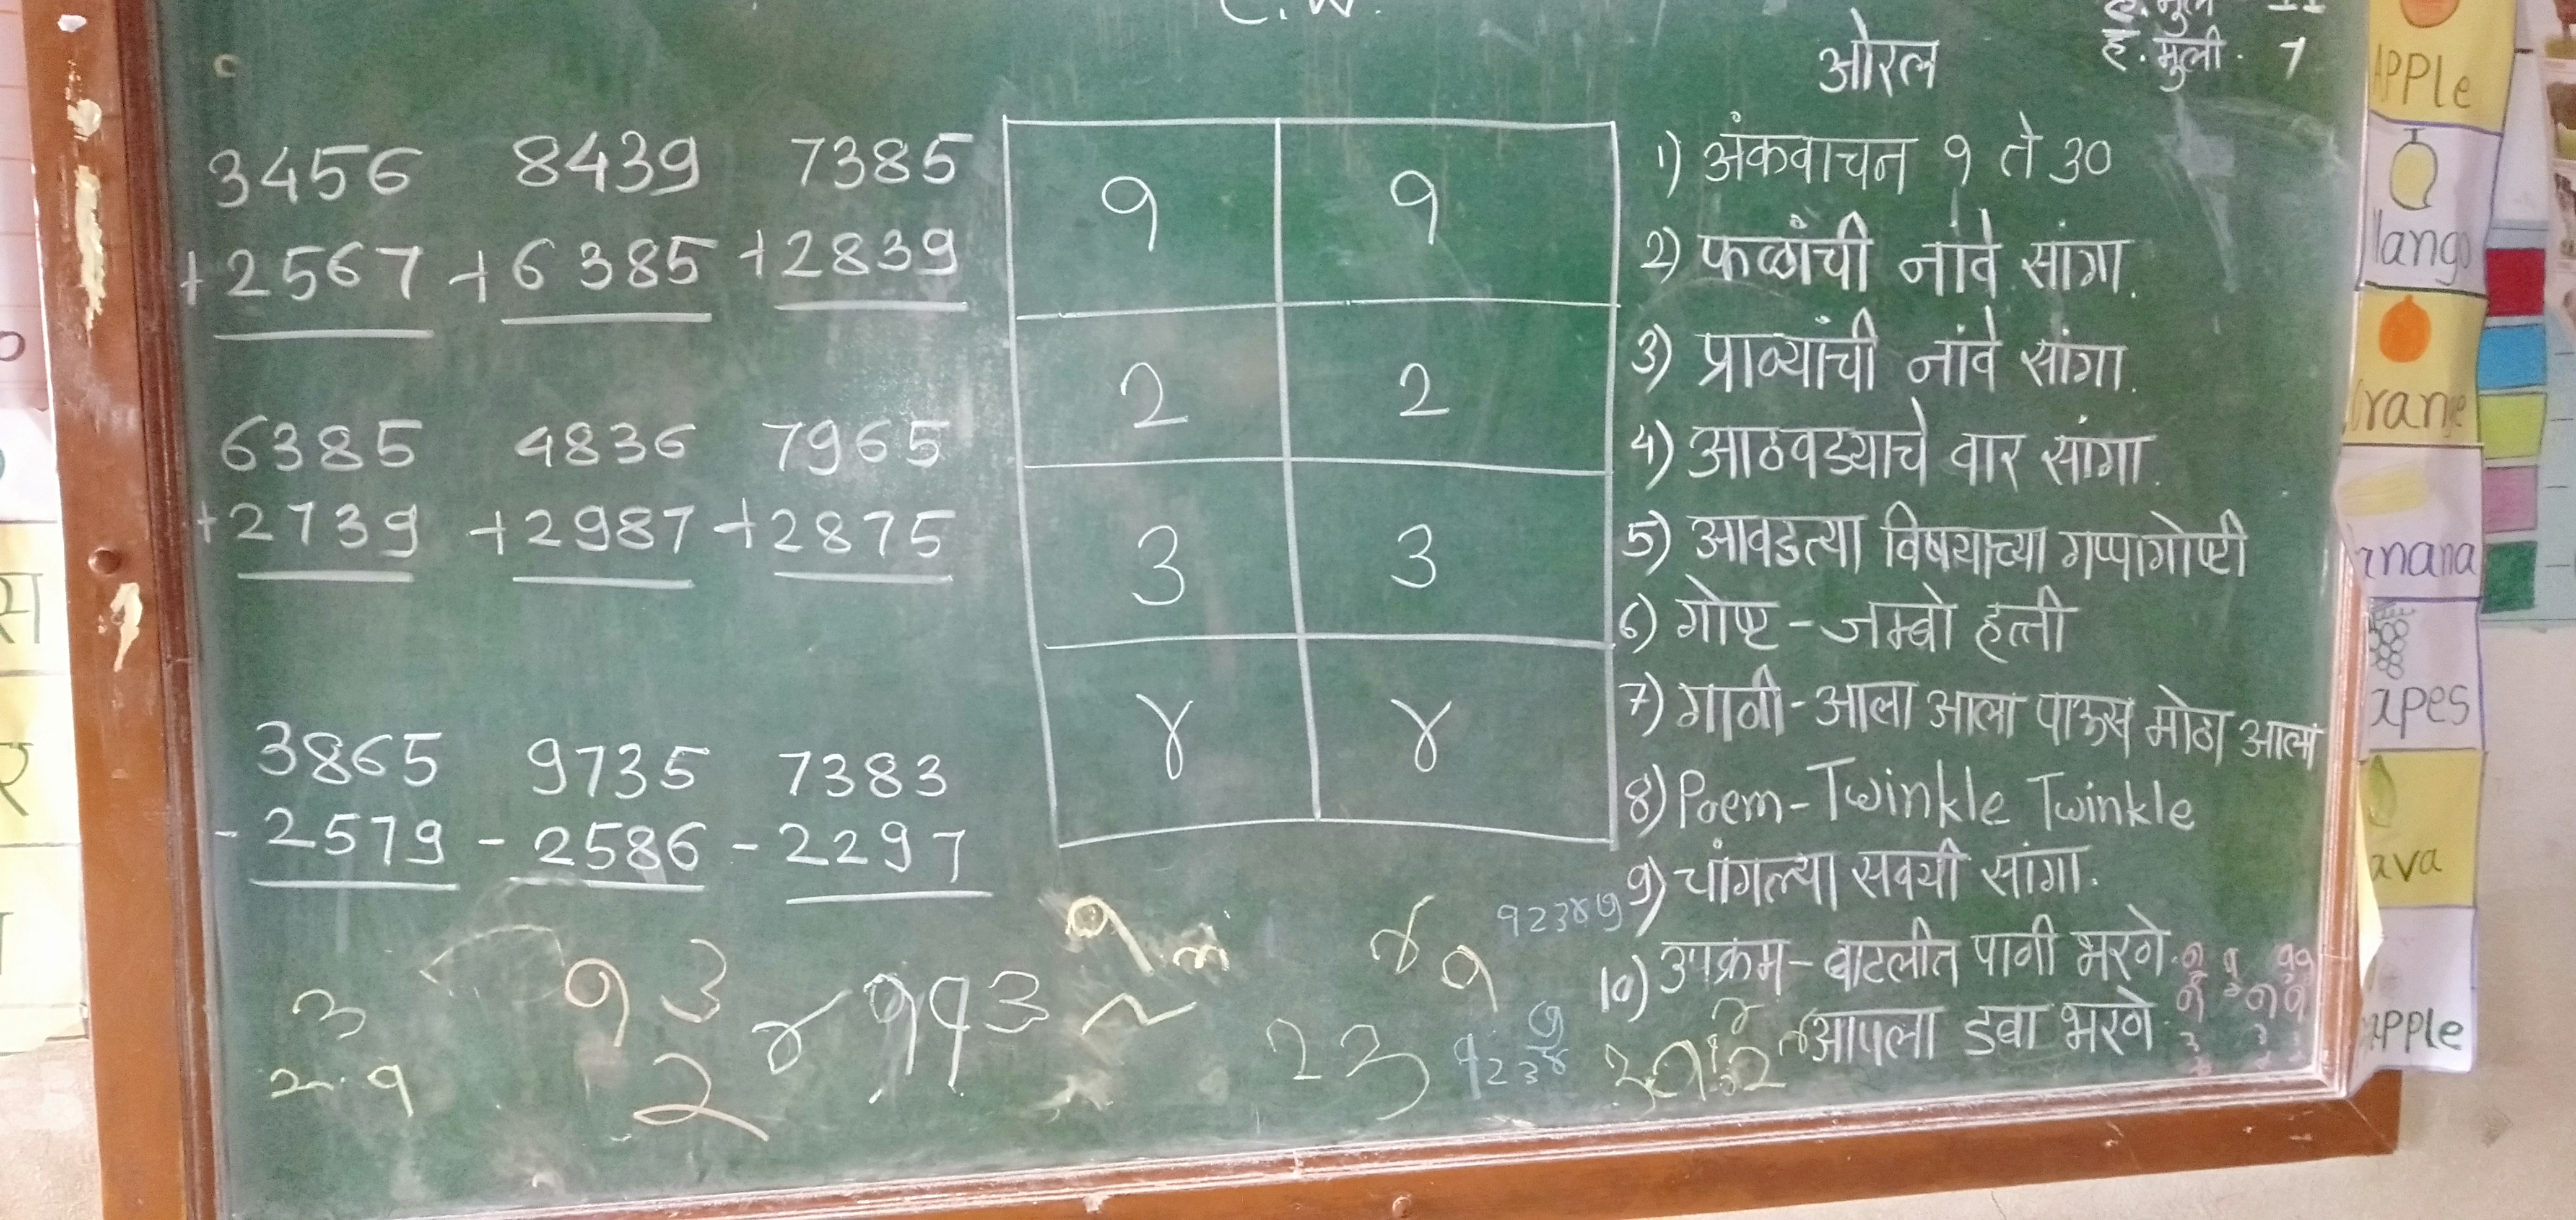 C.W.
ह. मुले 11
ह. मुली. 7
3456 8439 7385
+2567 +6385 +2839
6385 4836 7965
+2739 +2987 +2875
3865 9735 7383
-2579 -2586 -2297
१ १
2 2
3 3
४ ४
ओरल
1) अंकवाचन १ ते 30
2) फळांची नांवे सांगा.
3) प्राण्यांची नांवे सांगा.
4) आठवड्याचे वार सांगा.
5) आवडत्या विषयाच्या गप्पागोष्टी
6) गोष्ट - जम्बो हत्ती
7) गाणी - आला आला पाऊस मोठा आला
8) Poem - Twinkle Twinkle
9) चांगल्या सवयी सांगा.
10) उपक्रम - बाटलीत पाणी भरणे.
आपला डबा भरणे.
१ 3
2
४ ११3
3
2 . १
४ १
2 3
APPLE
Mango
Orange
anana
apes
ava
apple
स
र